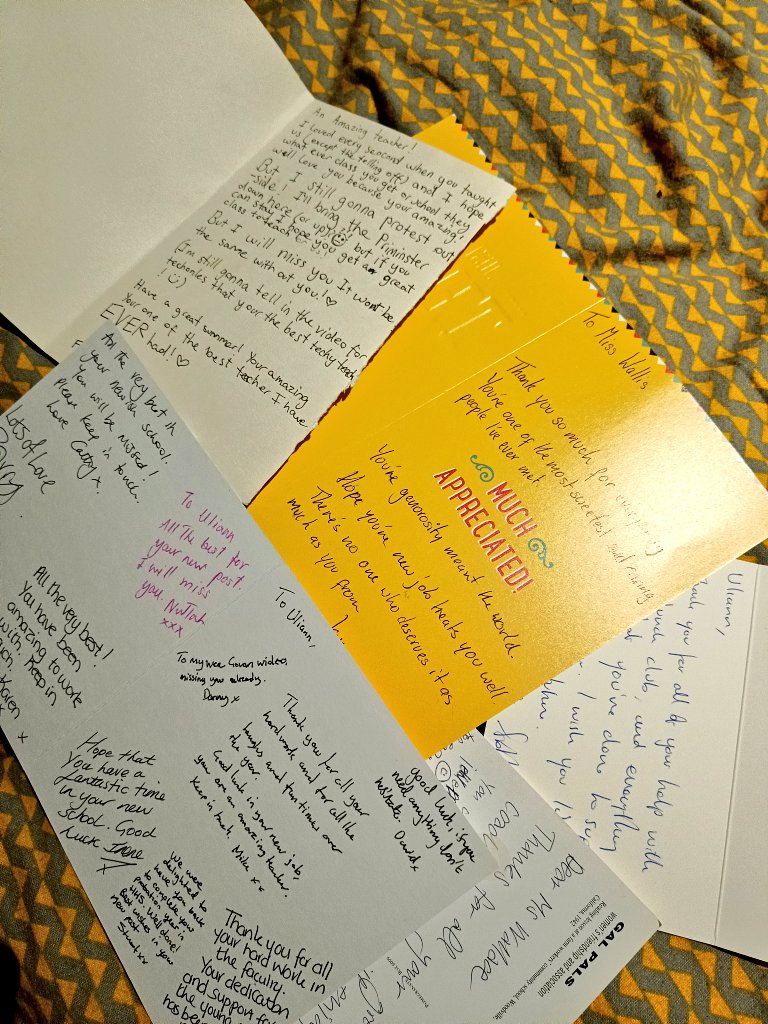 An Amazing teacher!
I loved every seocond when you taught
us (except the telling off) and I hope
what ever class you get or school they
well love you because your amazing!
But I still gonna protest out
side! I'll bring the Priminster
down here (or up) but if you
can stay I hope you get an great
class to teach
But I will miss you It wont be
the same with out you!
(I'm still gonna tell in the video for
techonles that your the best techy teach
Have a great summer! Your amazing
Your one of the best techer I have
EVER had!
To Miss Wallis
Thank you so much for everything
You're one of the most sweetest and caring
people I've ever met
MUCH
APPRECIATED!
You're generosity meant the world.
Hope you're new job treats you well.
There's no one who deserves it as
much as you from
All the very best in
your new school.
You will be missed!
Please keep in touch.
Love Cathy x.
Lots of Love
To Uliann
All the best for
your new post.
I will miss
you
xxx
To Uliann,
All the very best!
You have been
amazing to work
with. Keep in
Karen
x
To my wee Govan wideo,
missing you already.
Danny x
Thank you for all your
hard work and for all the
laughs and fun times over
the year.
Good luck in your new job,
you are an amazing teacher.
Keep in touch, Mike xx
good luck, if you
need anything don't
hesitate. David x
Hope that
You have a
fantastic time
in your new
school. Good
Luck Irene
We were
delighted to
have you back
to complete your
probation year in
HHS. Well done!
Best wishes in your
new post
Stuart xx
Thank you for all
your hard work in
the faculty.
Your dedication
and support for
the young
has been
Uliann,
Thank you for all of your help with
lunch club, and everything
you've done to
I wish you
Dear Ms Wallace
Thanks for all
your
GAL PALS
women's friendship and association
Reading lesson at farm workers' community school, Woodville
California, 1942